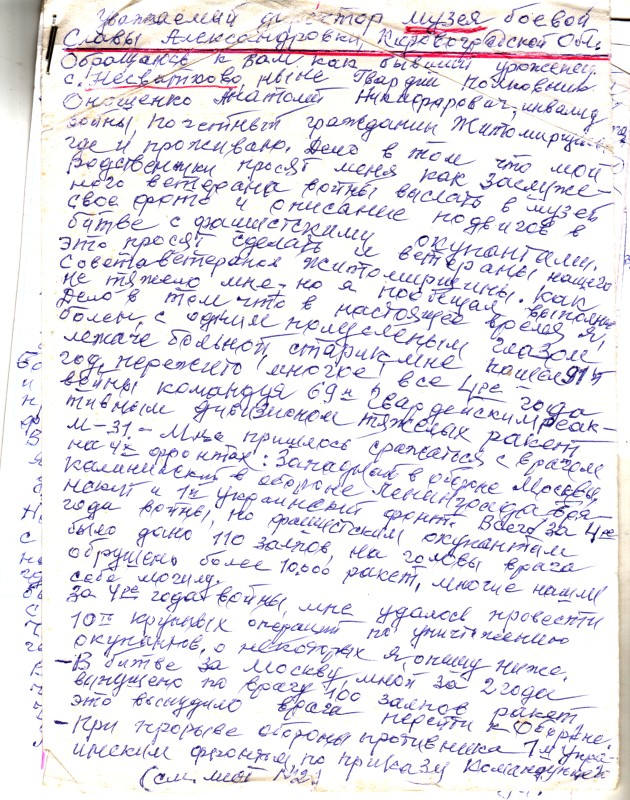 Уважаемый директор музея боевой
Славы Александровки, Кировоградской Обл.
Обращаюсь к Вам как бывший уроженец
с. Несватково, ныне Гвардии полковник
Онощенко Анатолий Никифорович, инвалид
войны, почетный гражданин Житомирщины
где и проживаю. Дело в том что мои
родственники просят меня как заслуже-
ного ветерана войны выслать в музей
свое фото и описание подвигов в
битве с фашистскими окупантами.
это просят сделать и ветераны нашего
совета ветеранов Житомирщины. Как
не тяжело мне, но я пообещал выполнить
Дело в том что в настоящее время я,
болен, с одним полуслепым глазом
лежаче больной, старик мне пошел 91й
год, пережито многое, все 4ре года
войны командуя 69м Гвардейским реак-
тивным дивизионом тяжелых ракет
М-31.- Мне пришлось сражаться с врагом
на 4х фронтах: Западный в обороне Москвы,
Калининский в обороне Ленинграда, Бря-
нский и 1й Украинский фронт. Всего за 4ре
года войны, по фашистским окупантам
было дано 110 залпов, на головы врага
обрушено более 10,000 ракет, многие нашли
себе могилу.
За 4ре года войны, мне удалось провести
10ть крупных операций по уничтожению
окупантов, о некоторых я, опишу ниже.
- В битве за Москву, мной за 2 года
выпущено по врагу 100 залпов ракет,
это вынудило врага перейти к Обороне.
- При прорыве обороны противника 1м Укра-
инским фронтом, по приказу Командующего
(см. лист №2)